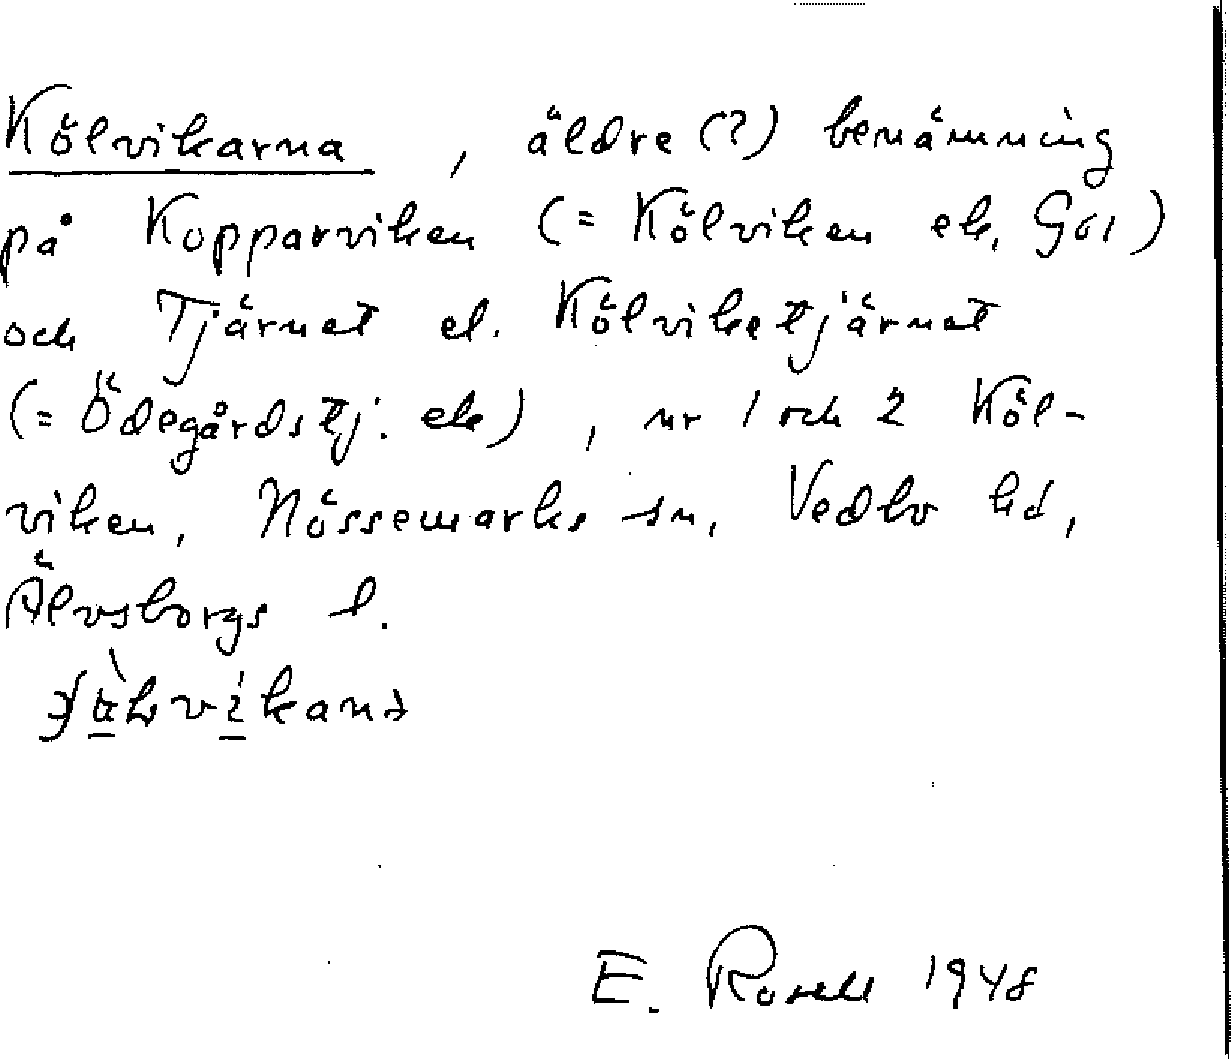 Kölvikarna, äldre (?) benämning
på Kopparviken (= Kölviken ek, Gös)
och Tjärnet el. Kölviketjärnet
(= Ödegårdstj. ek), nr 1 och 2 Köl-
viken, Nössemarks sn, Vedbo hd,
Älvsborgs l.
E. Rosell 1948